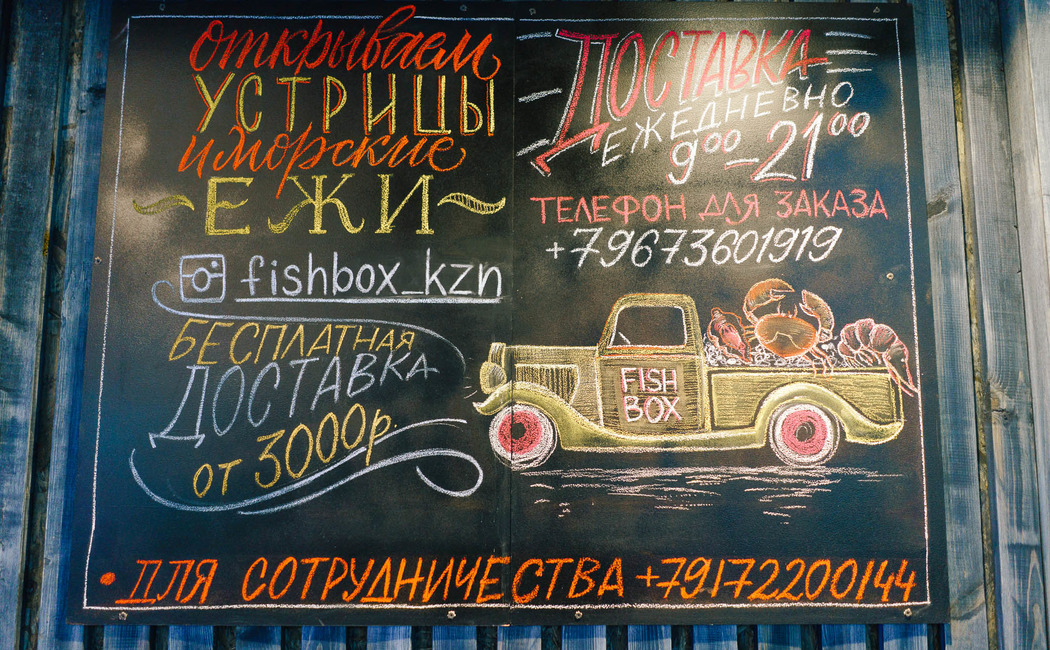 открываем
УСТРИЦЫ
и морские
~ЕЖИ~
fishbox_kzn
БЕСПЛАТНАЯ
ДОСТАВКА
от 3000р.
ДОСТАВКА
ЕЖЕДНЕВНО
9⁰⁰–21⁰⁰
ТЕЛЕФОН ДЛЯ ЗАКАЗА
+79673601919
FISH
BOX
• ДЛЯ СОТРУДНИЧЕСТВА +79172200144